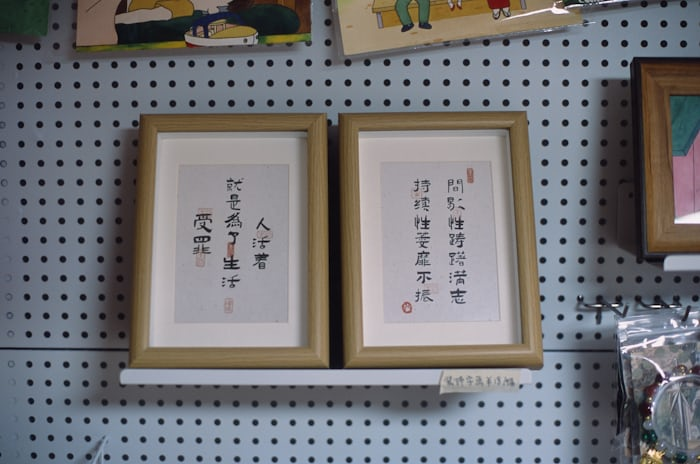 人活着
就是為了生活
受罪
間歇性踌躇满志
持续性萎靡不振